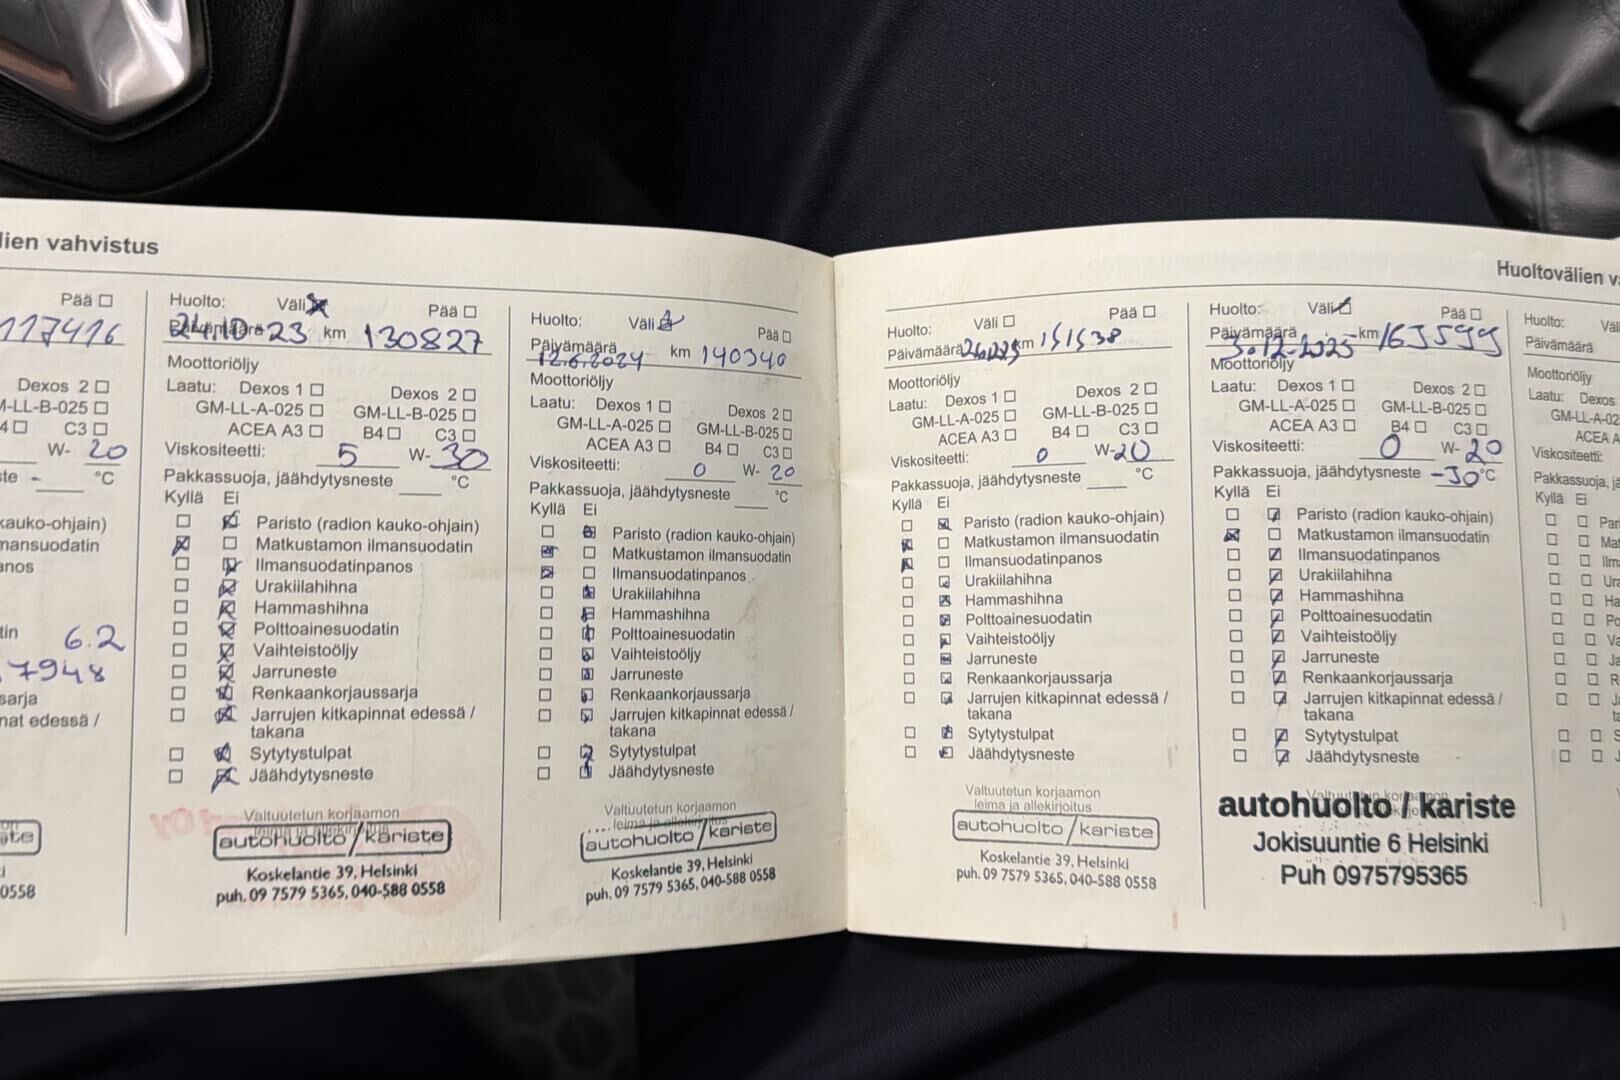 lien vahvistus
Pää
117416
Dexos 2
M-LL-B-025
C3
W- 20
°C
kauko-ohjain)
mansuodatin
anos
tin 6.2
7948
sarja
nat edessä /
0558
Huolto: Väli Pää
Päivämäärä 24.10.23 km 130827
Moottoriöljy
Laatu: Dexos 1 Dexos 2
GM-LL-A-025 GM-LL-B-025
ACEA A3 B4 C3
Viskositeetti: 5 W- 30
Pakkassuoja, jäähdytysneste °C
Kyllä Ei
Paristo (radion kauko-ohjain)
Matkustamon ilmansuodatin
Ilmansuodatinpanos
Urakiilahihna
Hammashihna
Polttoainesuodatin
Vaihteistoöljy
Jarruneste
Renkaankorjaussarja
Jarrujen kitkapinnat edessä /
takana
Sytytystulpat
Jäähdytysneste
Valtuutetun korjaamon
leima ja allekirjoitus
autohuolto / kariste
Koskelantie 39, Helsinki
puh. 09 7579 5365, 040-588 0558
Huolto: Väli Pää
Päivämäärä 12.6.2024 km 140340
Moottoriöljy
Laatu: Dexos 1 Dexos 2
GM-LL-A-025 GM-LL-B-025
ACEA A3 B4 C3
Viskositeetti: 0 W- 20
Pakkassuoja, jäähdytysneste °C
Kyllä Ei
Paristo (radion kauko-ohjain)
Matkustamon ilmansuodatin
Ilmansuodatinpanos
Urakiilahihna
Hammashihna
Polttoainesuodatin
Vaihteistoöljy
Jarruneste
Renkaankorjaussarja
Jarrujen kitkapinnat edessä /
takana
Sytytystulpat
Jäähdytysneste
Valtuutetun korjaamon
leima ja allekirjoitus
autohuolto / kariste
Koskelantie 39, Helsinki
puh. 09 7579 5365, 040-588 0558
Huolto: Väli Pää
Päivämäärä km 151538
Moottoriöljy
Laatu: Dexos 1 Dexos 2
GM-LL-A-025 GM-LL-B-025
ACEA A3 B4 C3
Viskositeetti: 0 W- 20
Pakkassuoja, jäähdytysneste °C
Kyllä Ei
Paristo (radion kauko-ohjain)
Matkustamon ilmansuodatin
Ilmansuodatinpanos
Urakiilahihna
Hammashihna
Polttoainesuodatin
Vaihteistoöljy
Jarruneste
Renkaankorjaussarja
Jarrujen kitkapinnat edessä /
takana
Sytytystulpat
Jäähdytysneste
Valtuutetun korjaamon
leima ja allekirjoitus
autohuolto / kariste
Koskelantie 39, Helsinki
puh. 09 7579 5365, 040-588 0558
Huoltovälien va
Huolto: Väli Pää
Päivämäärä 3.12.2025 km 163599
Moottoriöljy
Laatu: Dexos 1 Dexos 2
GM-LL-A-025 GM-LL-B-025
ACEA A3 B4 C3
Viskositeetti: 0 W- 20
Pakkassuoja, jäähdytysneste -30 °C
Kyllä Ei
Paristo (radion kauko-ohjain)
Matkustamon ilmansuodatin
Ilmansuodatinpanos
Urakiilahihna
Hammashihna
Polttoainesuodatin
Vaihteistoöljy
Jarruneste
Renkaankorjaussarja
Jarrujen kitkapinnat edessä /
takana
Sytytystulpat
Jäähdytysneste
autohuolto / kariste
Jokisuuntie 6 Helsinki
Puh 0975795365
Huolto: Väli
Päivämäärä
Moottoriöljy
Laatu: Dexos
GM-LL-A-02
ACEA A
Viskositeetti:
Pakkassuoja, jä
Kyllä Ei